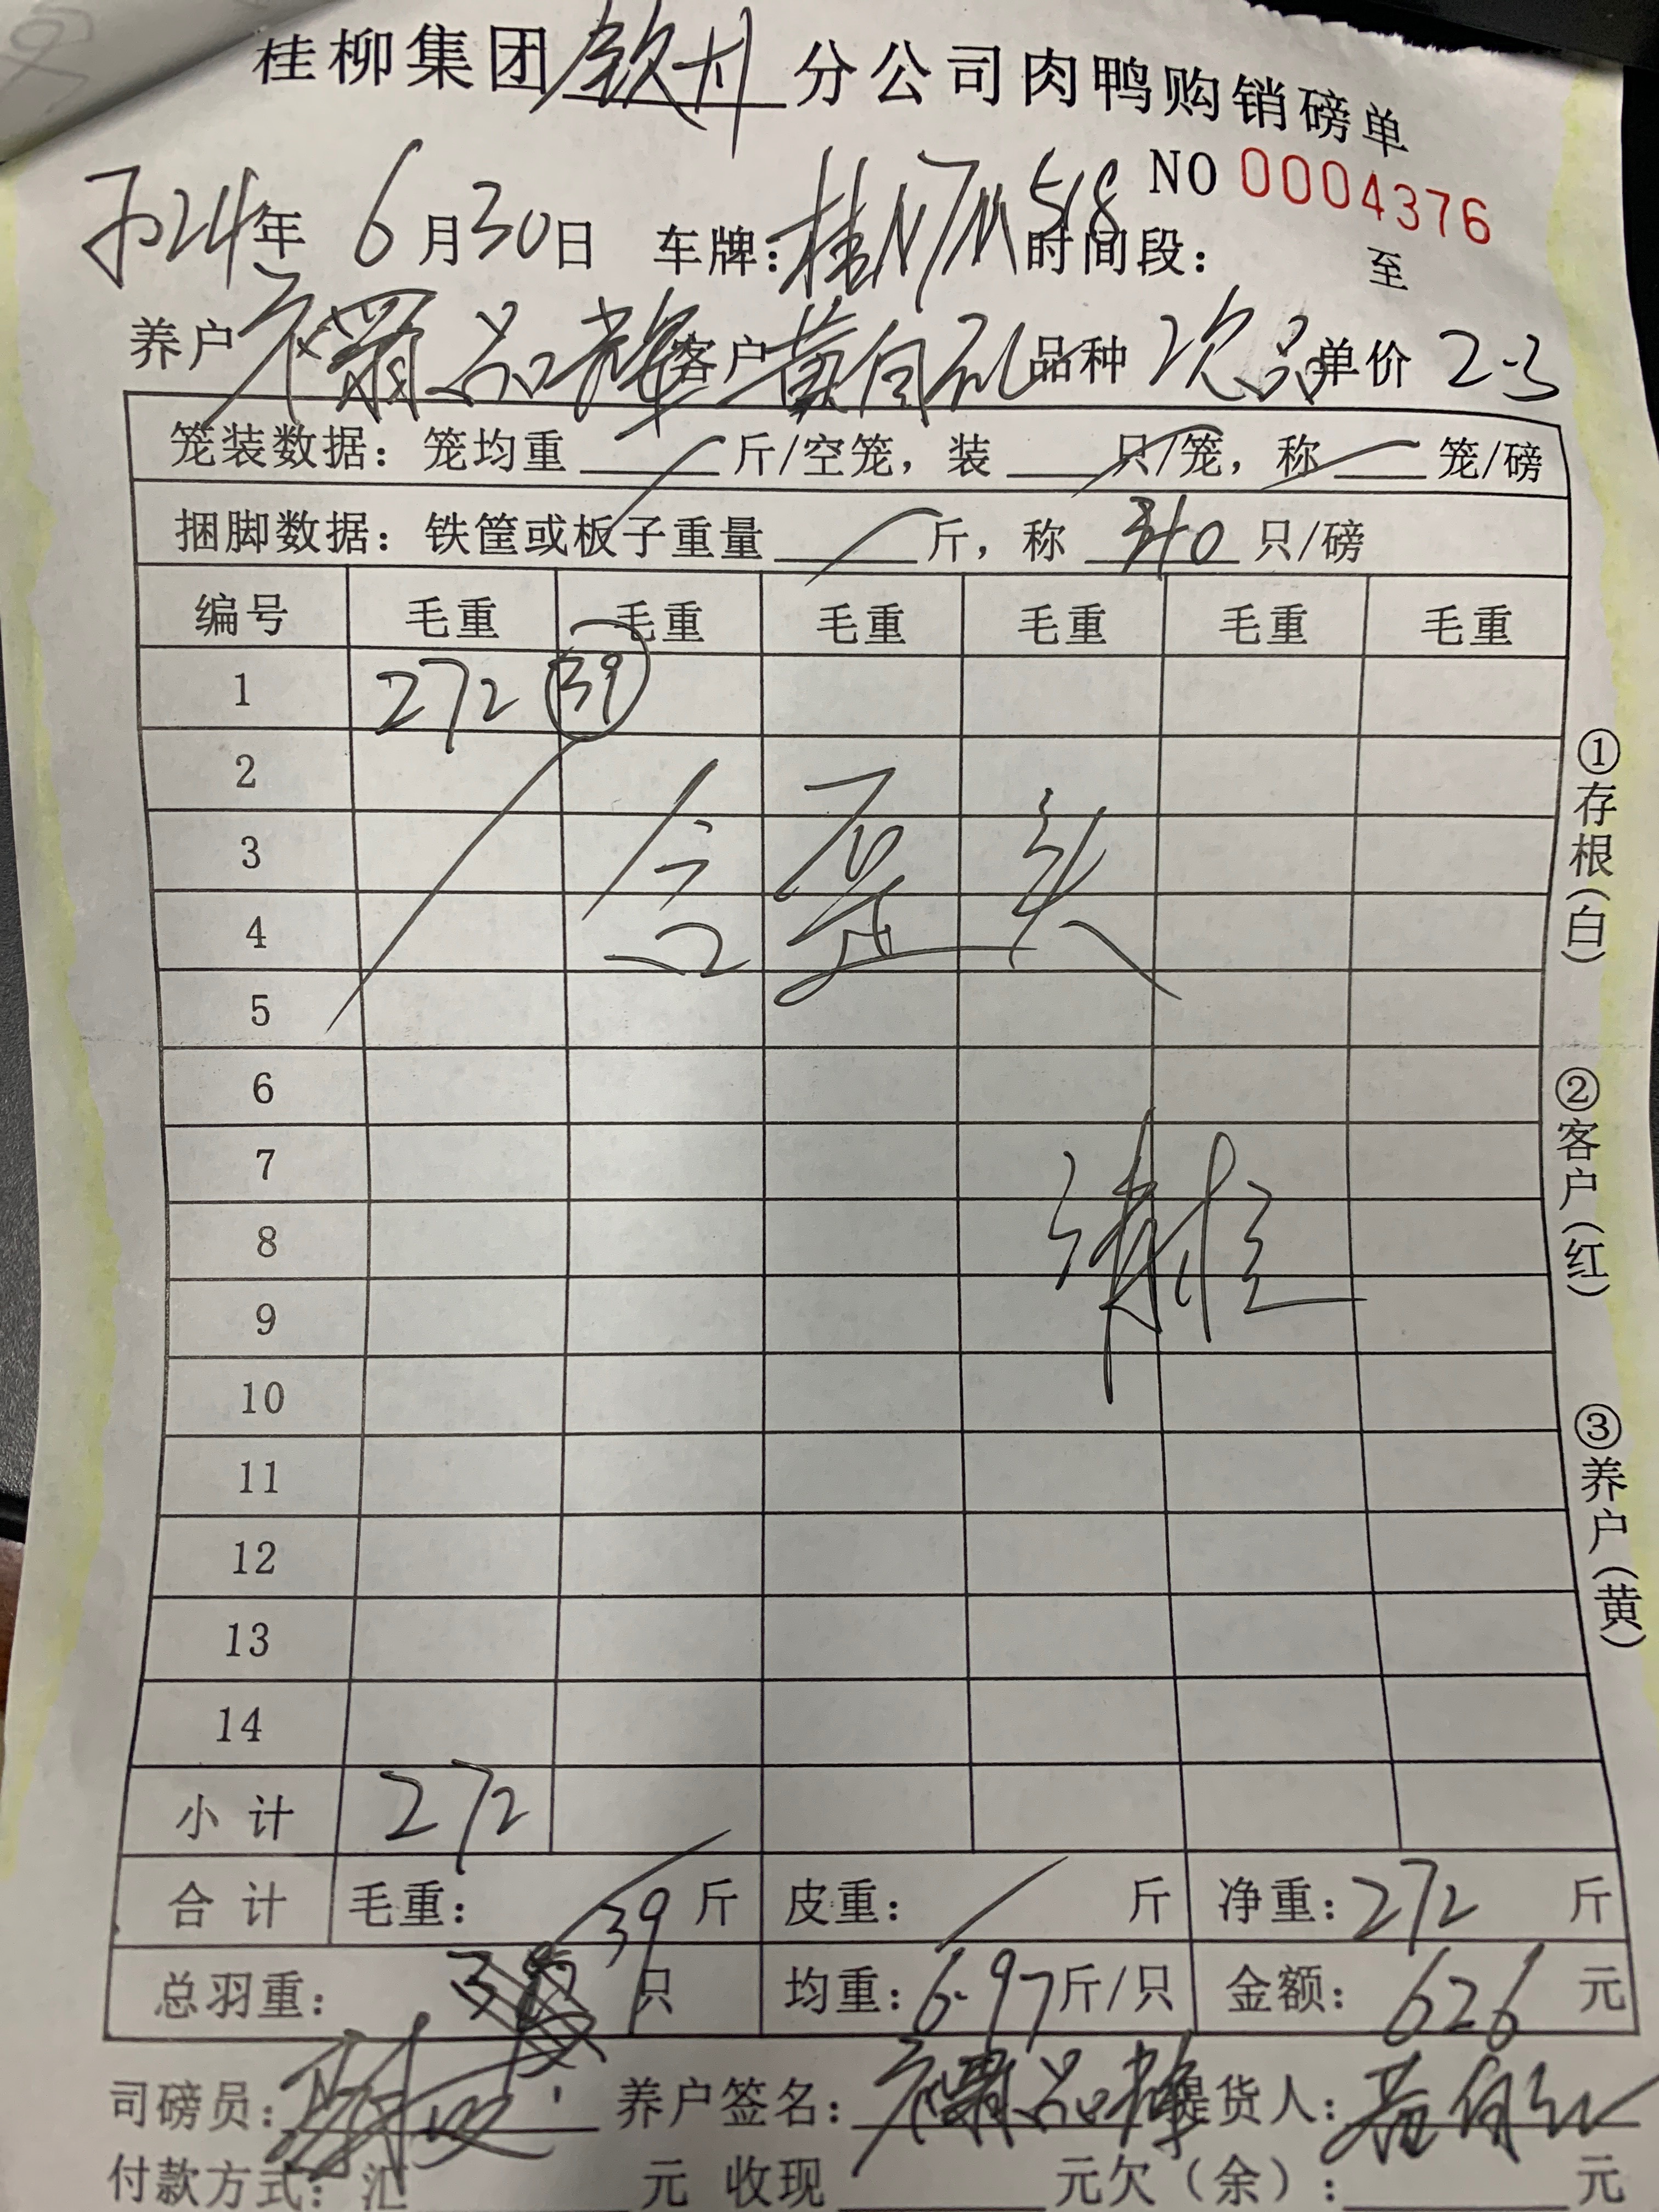 桂柳集团 钦州 分公司肉鸭购销磅单
NO 0004376
2024年 6月30日 车牌：桂N7M518 时间段： 至
养户 品 客户 黄 品种 次品 单价 2.3
笼装数据：笼均重 斤/空笼，装 只/笼，称 笼/磅
捆脚数据：铁筐或板子重量 斤，称 只/磅
编号 毛重 毛重 毛重 毛重 毛重 毛重
1 272 39
2
3
4
5
6
7
8
9
10
11
12
13
14
小计 272
合计 毛重： 斤 皮重： 斤 净重：272 斤
总羽重： 39 只 均重：6.97斤/只 金额：626 元
司磅员： 养户签名： 品 提货人：
付款方式：汇 元 收现 元欠（余）： 元
①存根（白）
②客户（红）
③养户（黄）